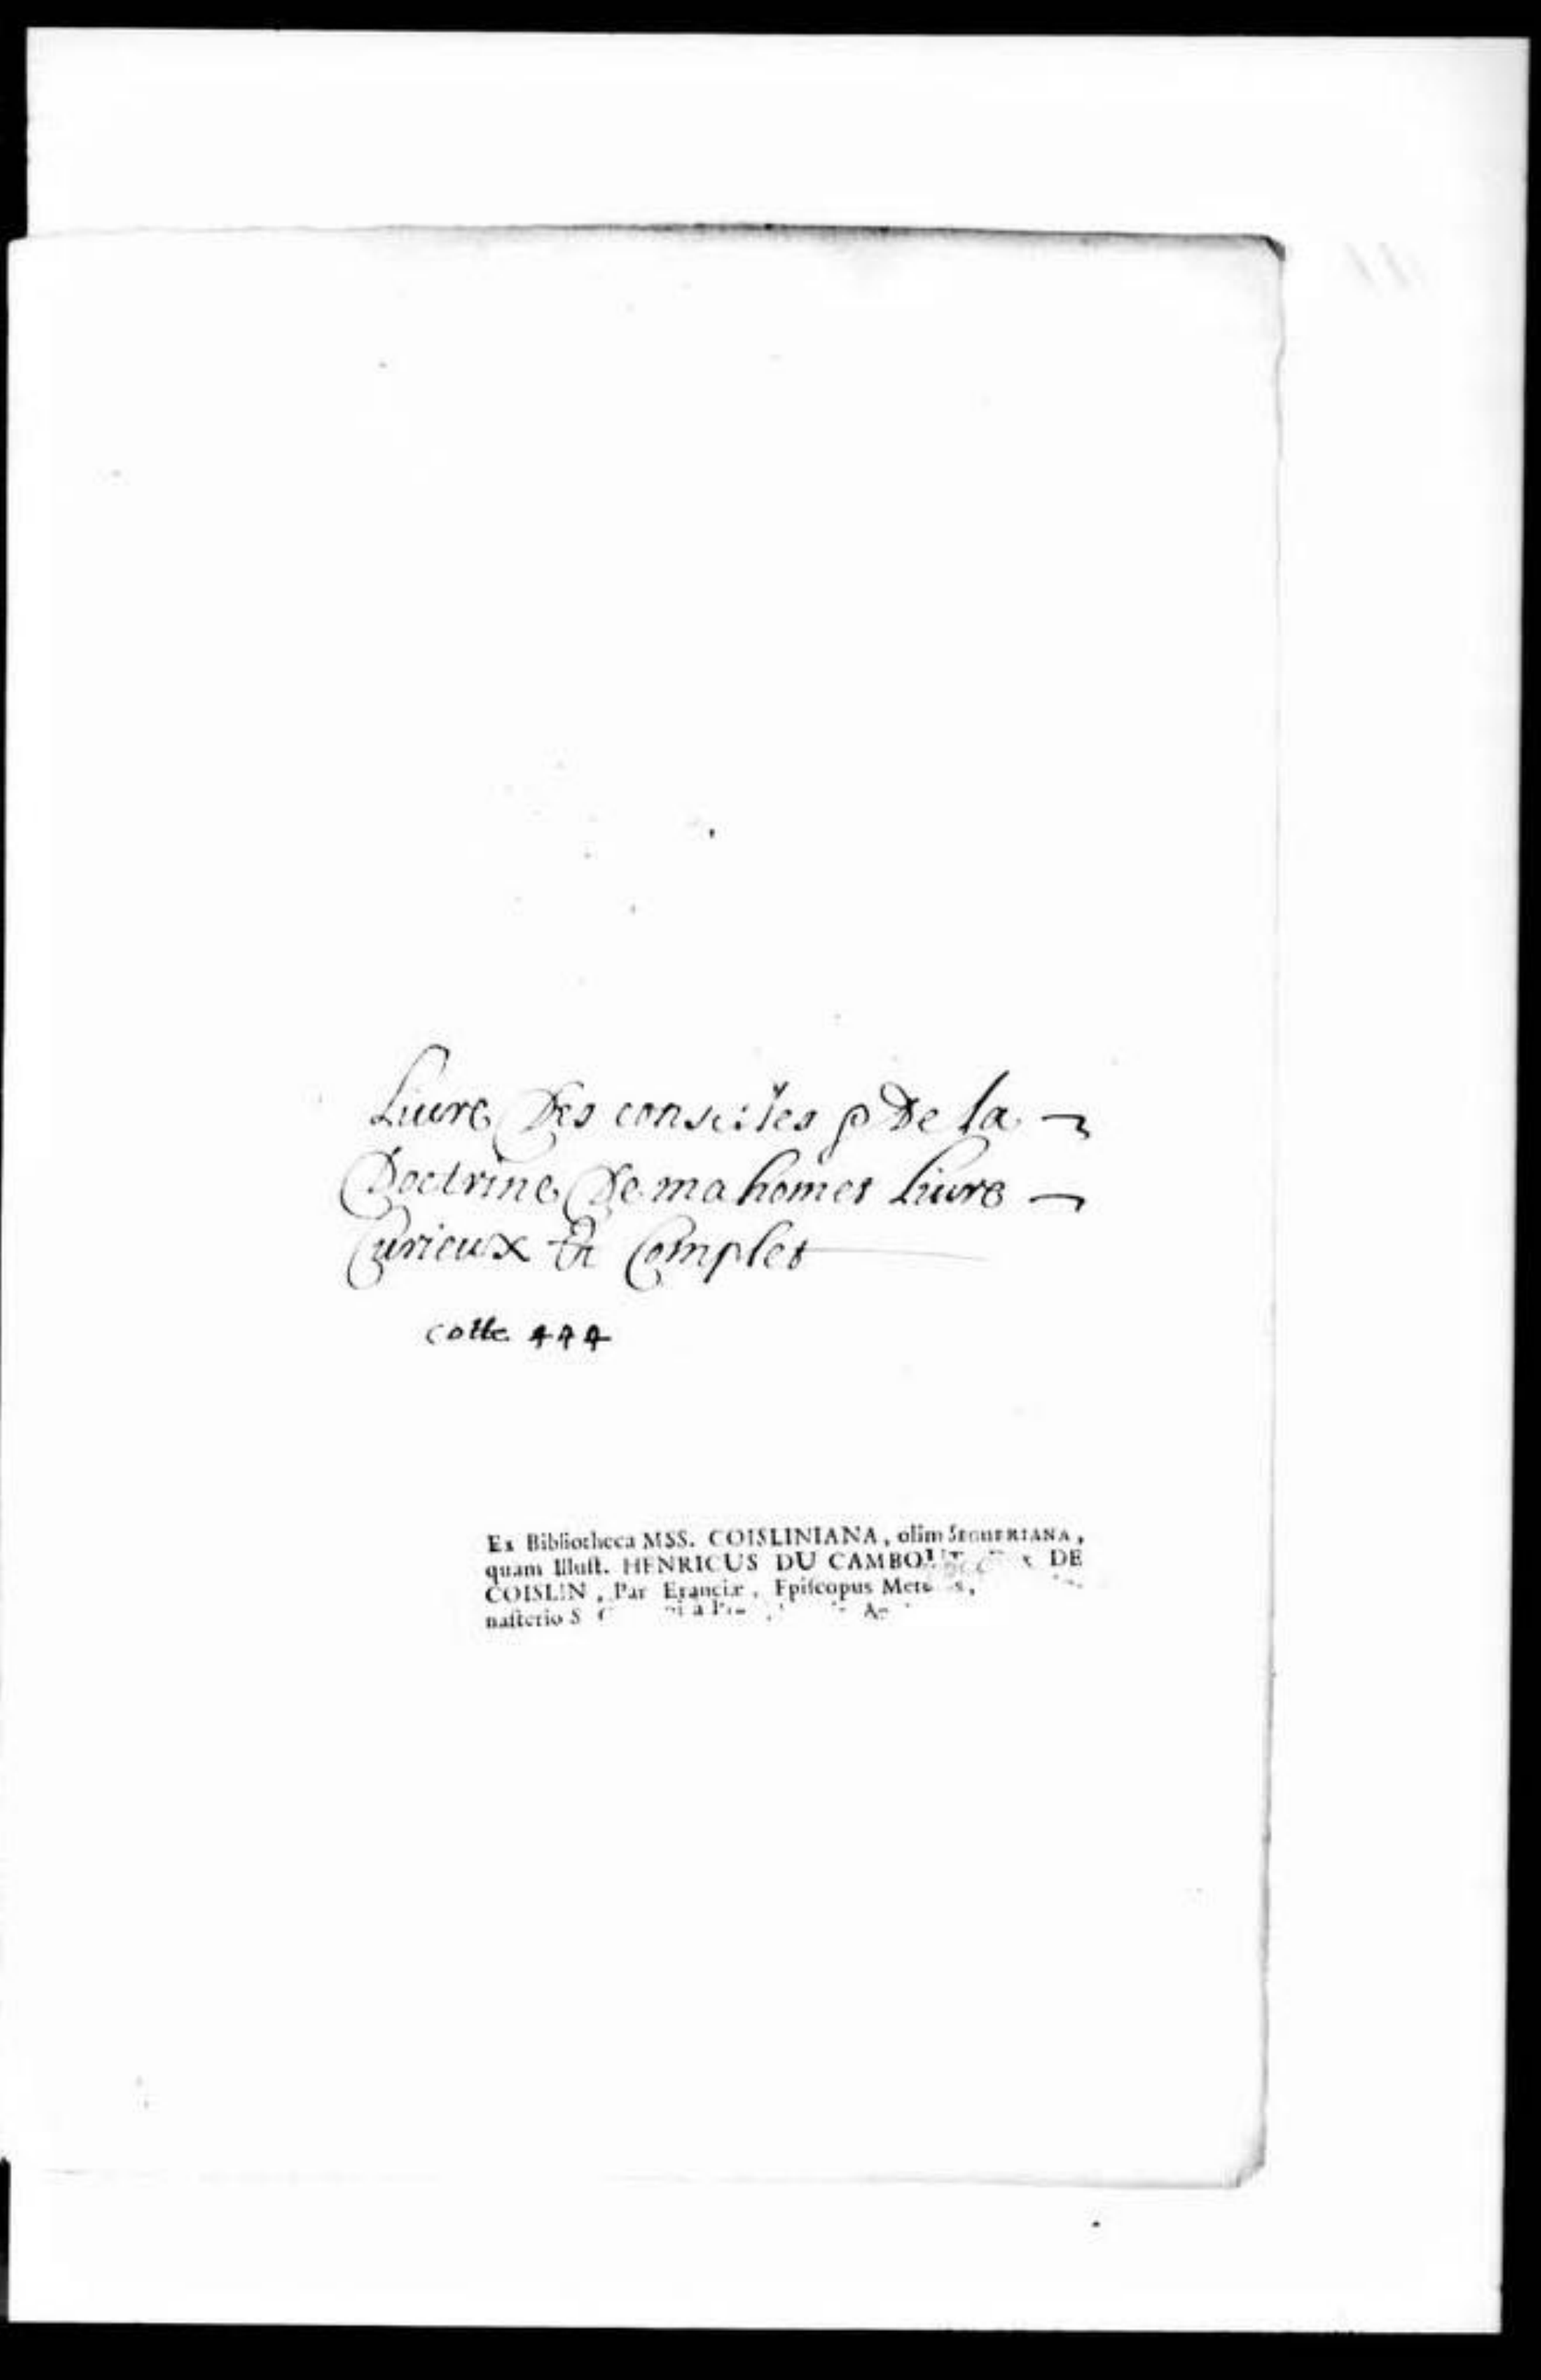 Liure Des conseiles & De la
Doctrine De mahomet Liure
Curieux Et Complet
Cotte 444
Ex Bibliotheca MSS. COISLINIANA, olim SEGUERIANA,
quam Illust. HENRICUS DU CAMBOUT DE
COISLIN, Par Franciæ, Episcopus Metensis,
nasterio S